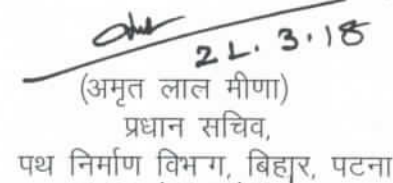 21.3.18
(अमृत लाल मीणा)
प्रधान सचिव,
पथ निर्माण विभाग, बिहार, पटना